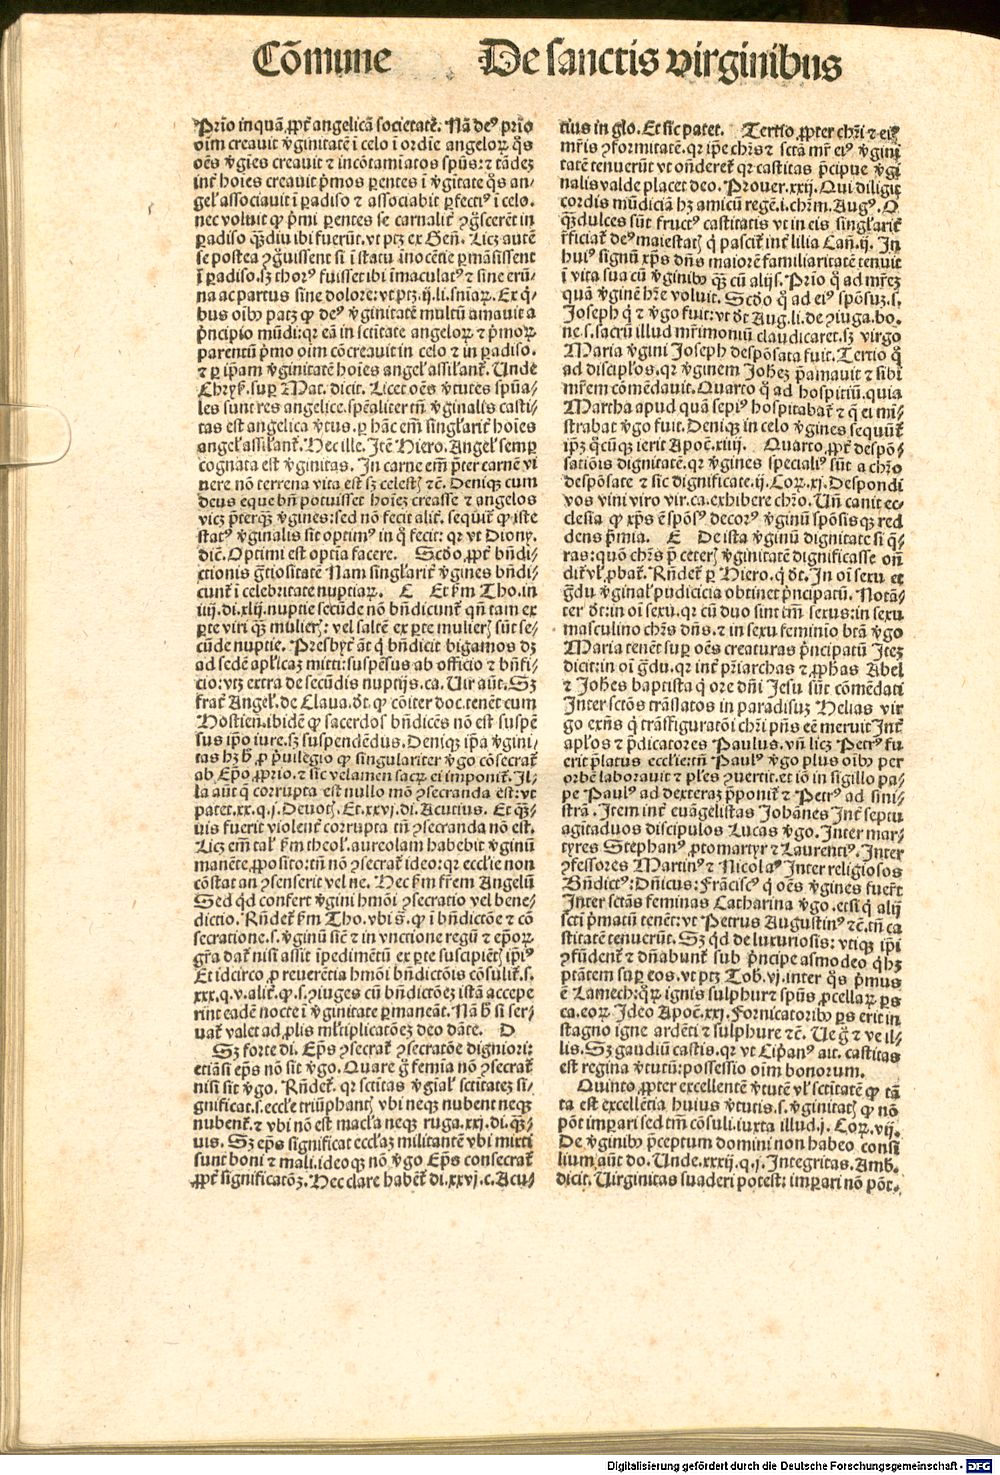 Cõmune De sanctis virginibus
Prio in quã, ꝓpt̃ angelicã societatẽ. Nã deꝰ prio
oĩm creauit v̓ginitatẽ ĩ celo ĩ ordĩe angeloꝝ q̃s
oẽs v̓gĩes creauit ⁊ incõtamĩatos spũs: ⁊ tãdez
int̃ hoĩes creauit p̃mos ꝑentes ĩ v̓gĩtate q̃s an-
gel̓ associauit ĩ ꝑadiso ⁊ associabit ꝑfectiꝰ ĩ celo.
nec voluit ꝙ p̃mi ꝑentes se carnalit̃ ꝯg̃scerẽt in
ꝑadiso qꝫdiu ibi fuerũt. vt ptꝫ ex Geñ. Licꝫ autẽ
se postea ꝯg̃uissent si ĩ statu ĩnocẽtie ꝑmãsissent
ĩ ꝑadiso. sꝫ thorꝰ fuisset ibi ĩmaculatꝰ ⁊ sine erũ-
na ac partus sine dolore: vt ptꝫ. ij. li. sniaꝝ. Ex q̃-
bus oibꝰ patꝫ ꝙ deꝰ v̓ginitatẽ multũ amauit a
p̃ncipio mũdi: qꝛ eã in sctitate angeloꝝ ⁊ p̃moꝝ
parentũ p̃mo oĩm cõcreauit in celo ⁊ in ꝑadiso.
⁊ ꝑ ip̃am v̓ginitatẽ hoĩes angel̓ assil̓ant̃. Unde
Chryß. suꝑ Mat. dicit. Licet oẽs v̓tutes spũa-
les sunt res angelice. spẽaliter tñ v̓ginalis casti-
tas est angelica v̓tus. ꝑ hãc em̃ singl̓arit̃ hoĩes
angel̓ assil̓ant̃. Hec ille. Itẽ Hiero. Angel̓ semꝑ
cognata est v̓ginitas. In carne em̃ p̃ter carnẽ vi
uere nõ terrena vita est sꝫ celestꝭ ⁊c̃. Deniqꝫ cum
deus eque bñ potuisset hoĩez creasse ⁊ angelos
vicꝫ p̃terqꝫ v̓gines: sed nõ fecit alit̃. sequit̃ ꝙ iste
statꝰ v̓ginalis sit optimꝰ in q̊ fecit: qꝛ vt Diony.
dic̃. Optimi est optĩa facere. Scd̓o, ꝓpt̃ bñdi-
ctionis g̃tiositatẽ Nam singl̓arit̃ v̓gines bñdi-
cunt̃ ĩ celebritate nuptiaꝝ. C Et fm̃ Tho. in
iiij. di. xlij. nuptie secũde nõ bñdicunt̃ qñ tam ex
ꝑte viri qꝫ mulierꝭ: vel saltẽ ex ꝑte mulierꝭ sũt se-
cũde nuptie. Presbyt̃ aũt q̃ bñdicit bigamos dꝫ
ad sedẽ apl̓icaz mitti: suspẽsus ab officio ⁊ bñfi-
cio: vtꝫ extra de secũdis nuptijs. ca. Uir aũt. Sꝫ
frat̃ Angel̓. de Claua. d̓t. ꝙ cõiter doc. tenẽt cum
Hostieñ. ibidẽ ꝙ sacerdos bñdicẽs nõ est suspẽ
sus ip̃o iure. sꝫ suspendẽdus. Deniqꝫ ip̃a v̓gini-
tas hꝫ h̓ ꝓ p̃uilegio ꝙ singulariter v̓go cõsecrat̃
ab Ep̃o, ꝓprio. ⁊ sic velamen sacꝝ ei imponit̃. Il-
la aũt q̃ corrupta est nullo mõ ꝯsecranda est: vt
patet. xx. q. j. Deuotꝭ. Et. xxvj. di. Acutius. Et qꝫ-
uis fuerit violent̃ corrupta tñ ꝯsecranda nõ est.
Licꝫ em̃ tal̓ fm̃ theol̓. aureolam habebit v̓ginũ
manẽte, ꝓposito: tñ nõ ꝯsecrat̃ ideo: qꝛ eccl̓ie non
cõstat an ꝯsenserit vel ne. Hec fm̃ frẽm Angelũ
Sed qd̓ confert v̓gini hmõi ꝯsecratio vel bene-
dictio. Rñdet̃ fm̃ Tho. vbi s̃. ꝙ ĩ bñdictõe ⁊ cõ
secratione. s. v̓ginũ sic̃ ⁊ in vnctione regũ ⁊ ep̃oꝝ
gr̃a dat̃ nisi assit ĩpedimẽtũ ex ꝑte suscipiẽtꝭ ip̃iꝰ
Et idcirco, ꝓ reuerẽtia hmõi bñdictõis cõsulit̃. s.
xxx. q. v. alit̃. ꝙ. s. ꝯiuges cũ bñdictõez istã accepe
rint eadẽ nocte ĩ v̓ginitate ꝑmaneãt. Nã h̓ si ser-
uat̃ valet ad, ꝓlis ml̓tiplicatõez deo dãte. D
Sꝫ forte di. Ep̃s ꝯsecrat̃ ꝯsecratõe digniori:
etiã si ep̃s nõ sit v̓go. Quare g̊ femĩa nõ ꝯsecrat̃
nisi sit v̓go. Rñdet̃. qꝛ sctitas v̓gĩal̓ sctitatez si-
gnificat. s. eccl̓e triũphantꝭ vbi neqꝫ nubent neqꝫ
nubent̃. ⁊ vbi nõ est macl̓a neqꝫ ruga. xxj. di. qꝫ-
uis. Sꝫ ep̃s significat eccl̓az militantẽ vbi mixti
sunt boni ⁊ mali. ideoqꝫ nõ v̓go Ep̃s consecrat̃
ꝓpt̃ significatõꝫ. Hec clare habẽt̃ di. xxvj. c. Acu-
tius in glo. Et sic patet. Tertio, ꝓpter chr̃i ⁊ eiꝰ
mr̃is ꝯformitatẽ. qꝛ ip̃e chr̃s ⁊ sctã mr̃ eiꝰ v̓gini
tatẽ tenuerũt vt oñderet̃ qꝛ castitas p̃cipue v̓gi
nalis valde placet deo. Prouer. xxij. Qui diligit
cordis mũdiciã hꝫ amicũ regẽ. i. chr̃m. Augꝰ. O
qꝫ dulces sũt fructꝰ castitatis vt in eis singl̓arit̃
r̃ficiat̃ deꝰ maiestatꝭ q̃ pascit̃ int̃ lilia Cañ. ij. In
huiꝰ signũ xp̃s dñs maiorẽ familiaritatẽ tenuit
ĩ vita sua cũ v̓ginibꝰ qꝫ cũ alijs. Prĩo q̊ ad mr̃eꝫ
quã v̓ginẽ hr̃e voluit. Scd̓o q̊ ad eiꝰ spõsuꝫ. s.
Joseph q̃ ⁊ v̓go fuit: vt d̓t Aug. li. de ꝯiuga. bo.
ne. s. sacrũ illud mr̃imoniũ claudicaret. sꝫ virgo
Maria v̓gini Joseph despõsata fuit. Tertio q̊
ad discipl̓os. qꝛ v̓ginem Joh̃eꝫ p̃amauit ⁊ sibi
mr̃em cõmẽdauit. Quarto q̊ ad hospitiũ. quia
Martha apud quã sepiꝰ hospitabat̃ ⁊ q̃ ei mi-
strabat v̓go fuit. Deniqꝫ in celo v̓gines sequũt̃
ip̃ꝫ q̊cũqꝫ ierit Apoc̃. xiiij. Quarto, ꝓpt̃ despõ-
satiõis dignitatẽ. qꝛ v̓gines specialiꝰ sũt a chr̃o
despõsate ⁊ sic dignificate. ij. Coꝝ. xj. Despondi
vos vini viro vir. ca. exhibere chr̃o. Uñ canit ec-
clesia ꝙ xp̃s ẽ spõsꝰ decorꝰ v̓ginũ spõsisqꝫ red
dens p̃mia. E De ista v̓ginũ dignitate si q̃-
ras: quõ chr̃s p̃ ceterꝭ v̓ginitatẽ dignificasse oñ
dit̃ vl̓, ꝓbat̃. Rñdet̃ ꝑ Hiero. q̃ d̓t. In oĩ sexu et
g̃du v̓ginal̓ pudicicia obtinet p̃ncipatũ. Notã-
ter d̓t: in oĩ sexu. qꝛ cũ duo sint tm̃ sexus: in sexu
masculino chr̃s dñs. ⁊ in sexu feminĩo btã v̓go
Maria tenẽt suꝑ oẽs creaturas p̃ncipatũ Iteꝫ
dicit: in oĩ g̃du. qꝛ int̃ pr̃iarchas ⁊ ꝓph̃as Abel
⁊ Joh̃es baptista q̃ ore dñi Jesu sũt cõmẽdati
Inter sctõs trãslatos in paradisuꝫ Helias vir
go exñs q̃ trãsfiguratõi chr̃i pñs eẽ meruit Int̃
apl̓os ⁊ p̃dicatores Paulus. vñ licꝫ Petrꝰ fu
erit p̃latus eccl̓ie: tñ Paulꝰ v̓go plus oibꝰ per
orbẽ laborauit ⁊ pl̓es ꝯuertit. et iõ in sigillo pa-
pe Paulꝰ ad dexteraꝫ p̃ponit̃ ⁊ Petrꝰ ad sini-
strã. Item int̃ euãgelistas Johãnes Int̃ septu
agitaduos discipulos Lucas v̓go. Inter mar-
tyres Stephanꝰ, ꝓtomartyr ⁊ Laurentiꝰ. Inter
ꝯfessores Martinꝰ ⁊ Nicolaꝰ Inter religiosos
Bñdictꝰ: Dñicus: Frãciscꝰ q̃ oẽs v̓gines fuer̃t
Inter sctãs feminas Catharina v̓go. etsi q̃ alij
scti p̃matũ tenẽt: vt Petrus Augustinꝰ ⁊c̃. tñ ca
stitatẽ tenuerũt. Sꝫ qd̓ de luxuriosis: vtiqꝫ ip̃i
ꝯfũdent̃ ⁊ dñabunt̃ sub p̃ncipe asmodeo q̃ hꝫ
ptãtem suꝑ eos. vt ptꝫ Tob. vj. inter q̃s p̃mus
ẽ Lamech: q̊ꝝ ignis sulphur ⁊ spũs, ꝓcellaꝝ ꝑs
ca. eoꝝ Ideo Apoc̃. xxj. Fornicatoribꝰ ꝑs erit in
stagno igne ardẽti ⁊ sulphure ⁊c̃. Ue g̊ ⁊ ve il-
lis. Sꝫ gaudiũ castis. qꝛ vt Cip̃anꝰ ait. castitas
est regina v̓tutũ: possessio oĩm bonorum.
Quinto, ꝓpter excellentẽ v̓tutẽ vl̓ sctitatẽ ꝙ tã
ta est excellẽtia huius v̓tutis. s. v̓ginitatꝭ ꝙ nõ
põt imꝑari sed tm̃ cõsuli. iuxta illud. j. Coꝝ. vij.
De v̓ginibꝰ p̃ceptum domini non habeo consi
lium aũt do. Unde. xxxij. q. j. Integritas. Amb.
dicit. Uirginitas suaderi potest: imꝑari nõ põt.
Digitalisierung gefördert durch die Deutsche Forschungsgemeinschaft - DFG